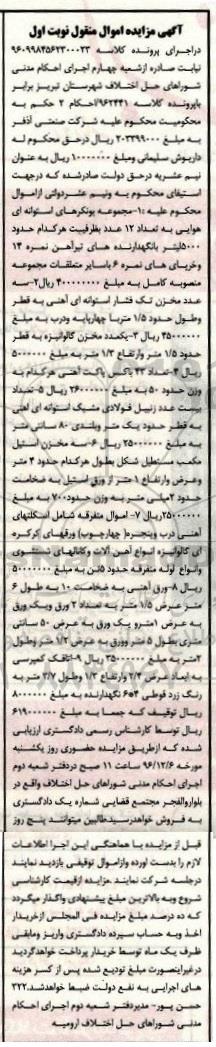 آگهی مزایده اموال منقول نوبت اول
دراجرای پرونده کلاسه ۹۶۰۹۹۸۴۵۶۲۳۰۰۰۲۳
نیابت صادره ازشعبه چهارم اجرای احکام مدنی
شوراهای حل اختلاف شهرستان تبریز برابر
باپرونده کلاسه ۹۶۲۴۴۱/احکام ۲ حکم به
محکومیت محکوم علیه شرکت صنعتی آذفر
به مبلغ ۲۰۳۳۹۹۰۰۰ ریال درحق محکوم له
داریوش سلیمانی ومبلغ ۱۰۰۰۰۰۰۰ ریال به عنوان
نیم عشریه درحق دولت صادرشده که درجهت
استیفای محکوم به ونیم عشردولتی ازاموال
محکوم علیه :۱-مجموعه بونکرهای استوانه ای
هوایی به تعداد ۱۲ عدد بظرفیت هرکدام حدود
۵۰۰۰لیتر بانگهدارنده های تیرآهن نمره ۱۴
وخرپای های نمره ۶ باسایر متعلقات مجموعه
منصوبه کامل به مبلغ ۴۰۰۰۰۰۰۰۰ ریال۲-سه
عدد مخزن تک فشار استوانه ای آهنی به قطر
وطول حدود ۱/۵ متربا چهارپایه ودرب به مبلغ
۴۵۰۰۰۰۰۰ ریال ۳-یکعدد مخزن گالوانیزه به قطر
حدود ۱/۵ متر وارتفاع ۱/۳ متر به مبلغ ۵۰۰۰۰۰۰
ریال ۴-تعداد ۲۲ باکس پاکت آهنی هرکدام به
وزن حدود ۵۰ به مبلغ ۲۶۰۰۰۰۰۰ ریال ۵-تعداد
بیست عدد زنبیل فولادی مشبک استوانه ای آهنی
به قطر حدود یک متر وبلندی ۸۰ سانتی متر
به مبلغ ۲۵۰۰۰۰۰۰ ریال ۶-سه مخزن استیل
مکعب مستطیل شکل بطول هرکدام حدود ۴ متر
وعرض وارتفاع ۱ متر از ورق استیل به ضخامت
حدود ۲میلی متر به وزن حدود۷۰۰ به مبلغ
۲۵۰۰۰۰۰۰ریال ۷- اموال متفرقه شامل اسکلتهای
آهنی درب وپنجره( چهارچوب) ورقهای کرکره
ای گالوانیزه انواع آهن آلات وکانالهای شستشوی
وانواع لوله متفرقه حدود ۵تن به مبلغ ۵۰۰۰۰۰۰۰
ریال ۸-ورق آهنی به ضخامت ۱۰ به طول ۶
متر عرض ۱/۵ متر به تعداد ۲ ورق ویک ورق
به عرض ۱مترو یک ورق به عرض ۵۰ سانتی
متری بطول ۵ متر وورق به عرض ۱/۲ متر وطول
۲متر به مبلغ ۳۵۰۰۰۰۰۰ ریال ۹-اتاقک کمپرسی
به ابعاد عرض ۲/۴ وارتفاع ۱/۳ وطول ۳/۷ متر به
رنگ زرد قوطی ۴و۶ نگهدارنده به مبلغ ۸۰۰۰۰۰۰
ریال توقیف که جمعا به مبلغ ۶۱۹۰۰۰۰۰۰
ریال توسط کارشناس رسمی دادگستری ارزیابی
شده که ازطریق مزایده حضوری روز یکشنبه
مورخه ۹۶/۱۲/۶ ساعت ۱۱ صبح دردفتر شعبه دوم
اجرای احکام مدنی شوراهای حل اختلاف واقع در
بلواروالفجر مجتمع قضایی شماره یک دادگستری
به فروش خواهدرسیدطالبین میتوانند پنج روز
قبل از مزایده با هماهنگی این اجرا اطلاعات
لازم را بدست اورده وازاموال توقیفی بازدید نمایند
درجلسه شرکت نمایند .مزایده ازقیمت کارشناسی
شروع وبه بالاترین مبلغ پیشنهادی واگذار میگردد
که ده درصد مبلغ مزایده فی المجلس ازخریدار
اخذ وبه حساب سپرده دادگستری واریز ومابقی
ظرف یک ماه توسط خریدار پرداخت خواهدگردید
درغیراینصورت مبلغ تودیع شده پس از کسر هزینه
های اجرایی به نفع دولت ضبط خواهدشد.۳۲۲
حسن پور- مدیردفتر شعبه دوم اجرای احکام
مدنی شوراهای حل اختلاف ارومیه